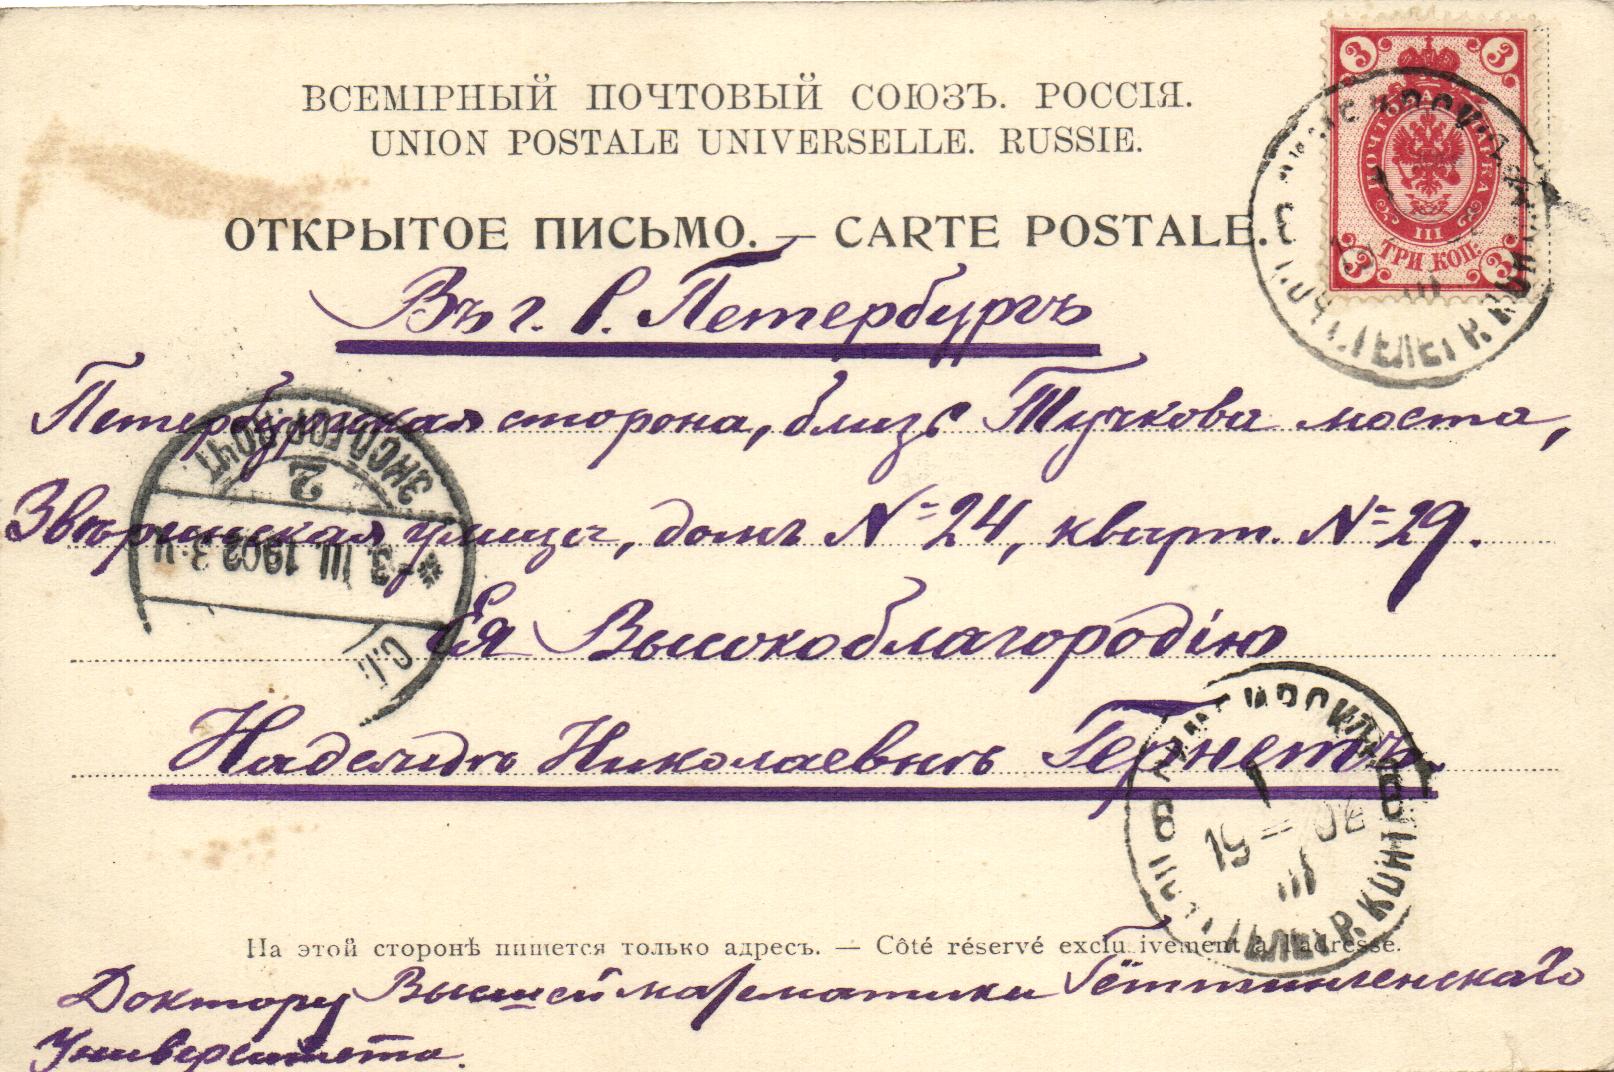 ВСЕМІРНЫЙ ПОЧТОВЫЙ СОЮЗЪ. РОССІЯ.
UNION POSTALE UNIVERSELLE. RUSSIE.
ОТКРЫТОЕ ПИСЬМО. — CARTE POSTALE.
3 3
ПОЧТОВАЯ МАРКА
III
ТРИ КОП.
3 3
Въ г. С. Петербургъ
Петербургская сторона, близь Тучкова моста,
Звѣринская улица, домъ № 24, кварт. № 29.
Ея Высокоблагородію
Надеждѣ Николаевнѣ Гернетъ.
ЭКСП. ГОР. ПОЧТ.
2
3 III 1902 3 Ч
1
19 02
III
ТЕЛЕГР. КОНТ
На этой сторонѣ пишется только адресъ. — Côté réservé exclu ivement à l'adresse.
Доктору Высшей математики Гёттингенскаго
Университета.